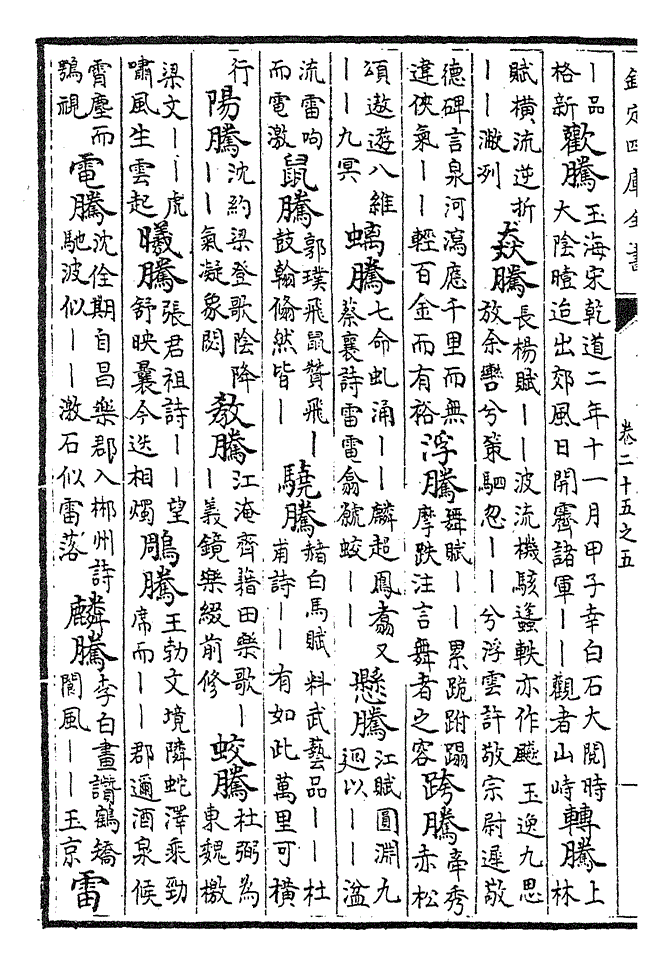 欽定四庫全書
卷二十五之五
一
｜品
格新
歡騰
玉海宋乾道二年十一月甲子幸白石大閱時
大陰曀迨出郊風日開霽諸軍｜｜觀者山峙
轉騰
上
林
賦橫流逆折
｜｜潎列
猋騰
長楊賦｜｜波流機駭蠭軼亦作飇 王逸九思
放余轡兮策駟忽｜｜兮浮雲許敬宗尉遲敬
德碑言泉河瀉應千里而無
違俠氣｜｜輕百金而有裕
浮騰
舞賦｜｜累跪跗蹋
摩跌注言舞者之容
跨騰
牽秀
赤松
頌遨遊八維
｜｜九冥
螭騰
七命虬涌｜｜麟超鳳翥又
蔡襄詩雷電翕虩蛟｜｜
懸騰
江賦圓淵九
迴以｜｜湓
流雷呴
而電激
鼠騰
郭璞飛鼠贊飛｜
鼓翰翛然皆｜
驍騰
赭白馬賦料武藝品｜｜杜
甫詩｜｜有如此萬里可橫
行
陽騰
沈約梁登歌陰降
｜｜氣凝象閟
教騰
江淹齊藉田樂歌｜
｜義鏡樂綴前修
蛟騰
杜弼為
東魏檄
梁文｜｜虎
嘯風生雲起
曦騰
張君祖詩｜｜望
舒映曩今迭相燭
鵰騰
王勃文境隣蛇澤乘勁
席而｜｜郡邇酒泉候
霄塵而
鶚視
電騰
沈佺期自昌樂郡入郴州詩
馳波似｜｜激石似雷落
麟騰
李白畫讚鶴矯
閬風｜｜玉京
雷